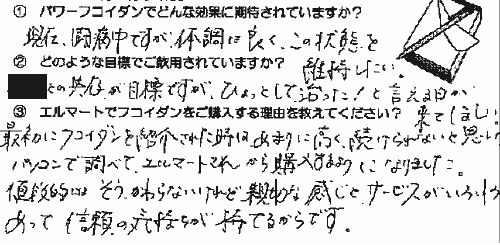 ① パワーフコイダンでどんな効果に期待されていますか?
現在、闘病中ですが体調は良く、この状態を
維持したい。
② どのような目標でご飲用されていますか?
との共存が目標ですが、ひょっとして治った!と言える日が
来てほしい!
③ エルマートでフコイダンをご購入する理由を教えてください?
最初にフコイダンを紹介された時は、あまりに高く、続けられないと思い
パソコンで調べて、エルマートさんから購入するようになりました。
値段的には そう、かわらないけれど 親切な 感じと、サービスがいろいろ
あって 信頼の気持ちが 持てるからです。